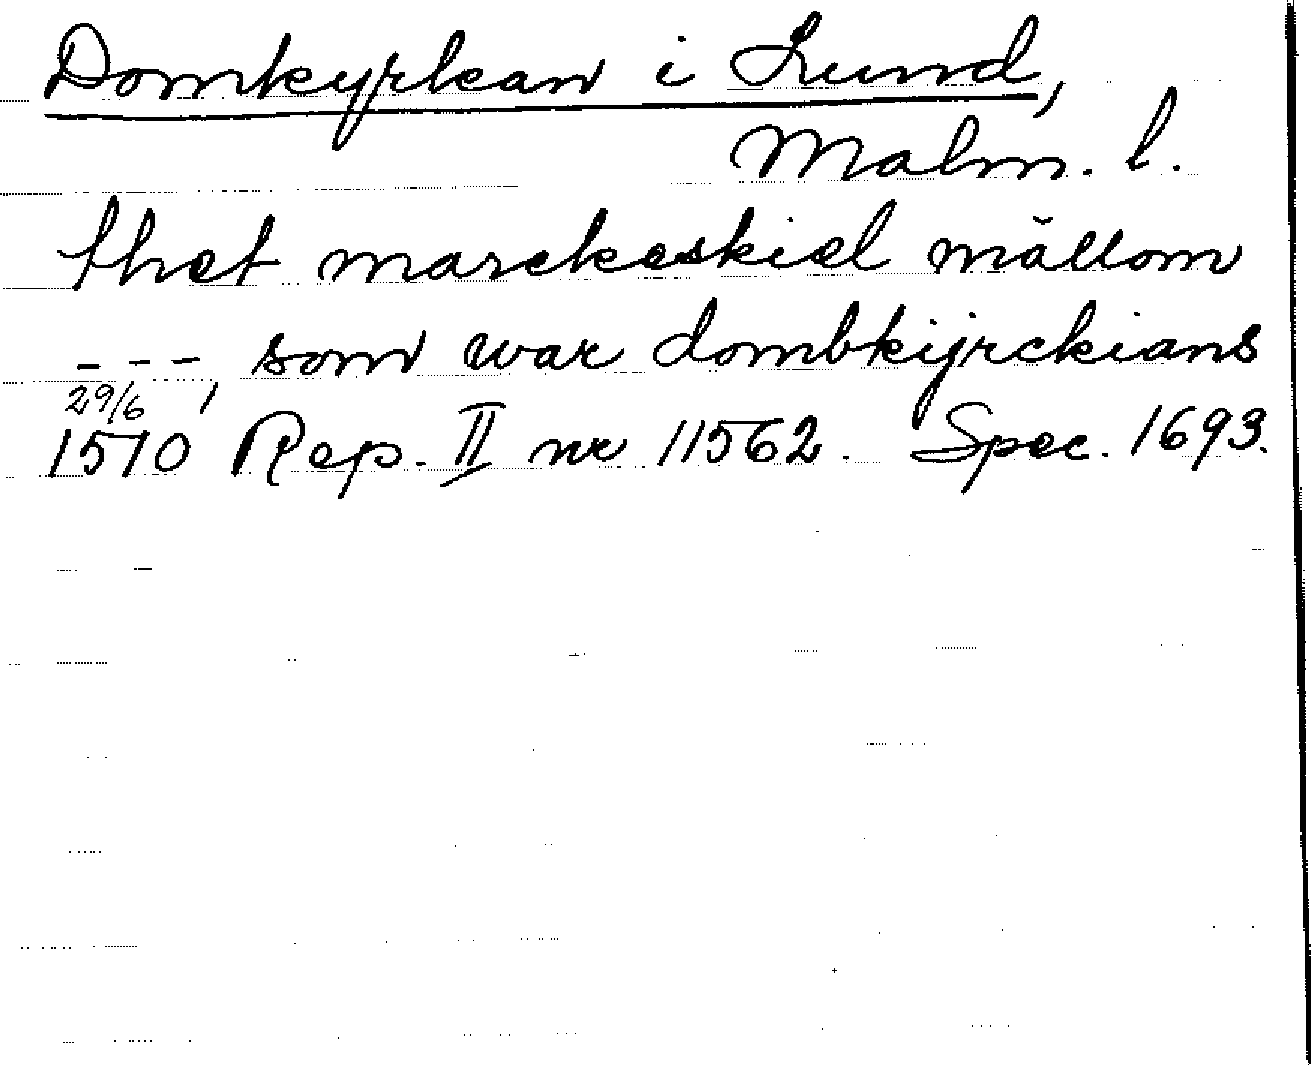 Domkyrkan i Lund,
Malm. l.
thet marckeskiel mällom
- - -, som war dombkijrckians
29/6
1510 Rep. II nr 11562. Spec. 1693.